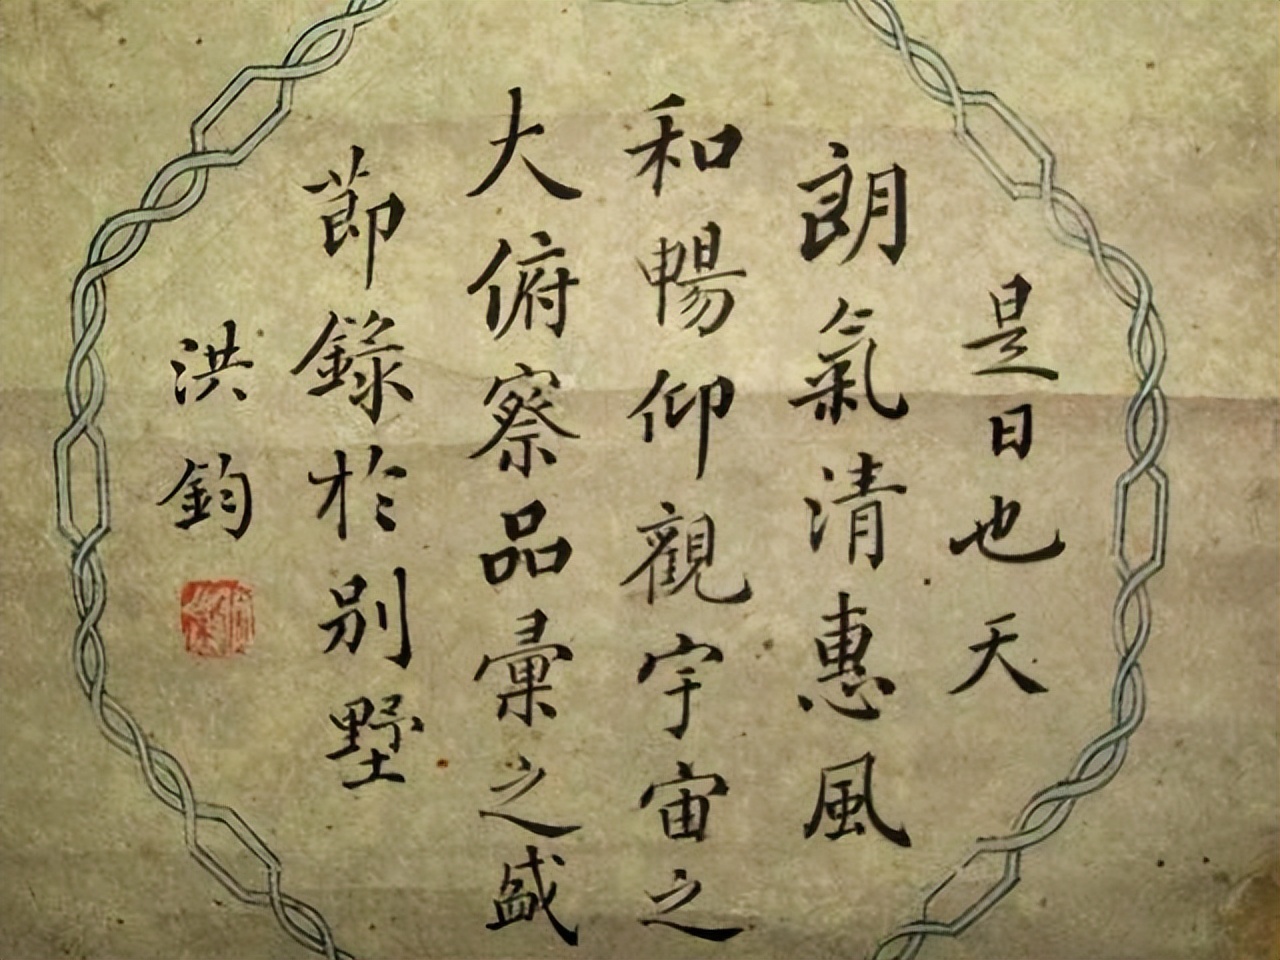 是日也天
朗氣清惠風
和暢仰觀宇宙之
大俯察品彙之盛
節錄於別墅
洪鈞